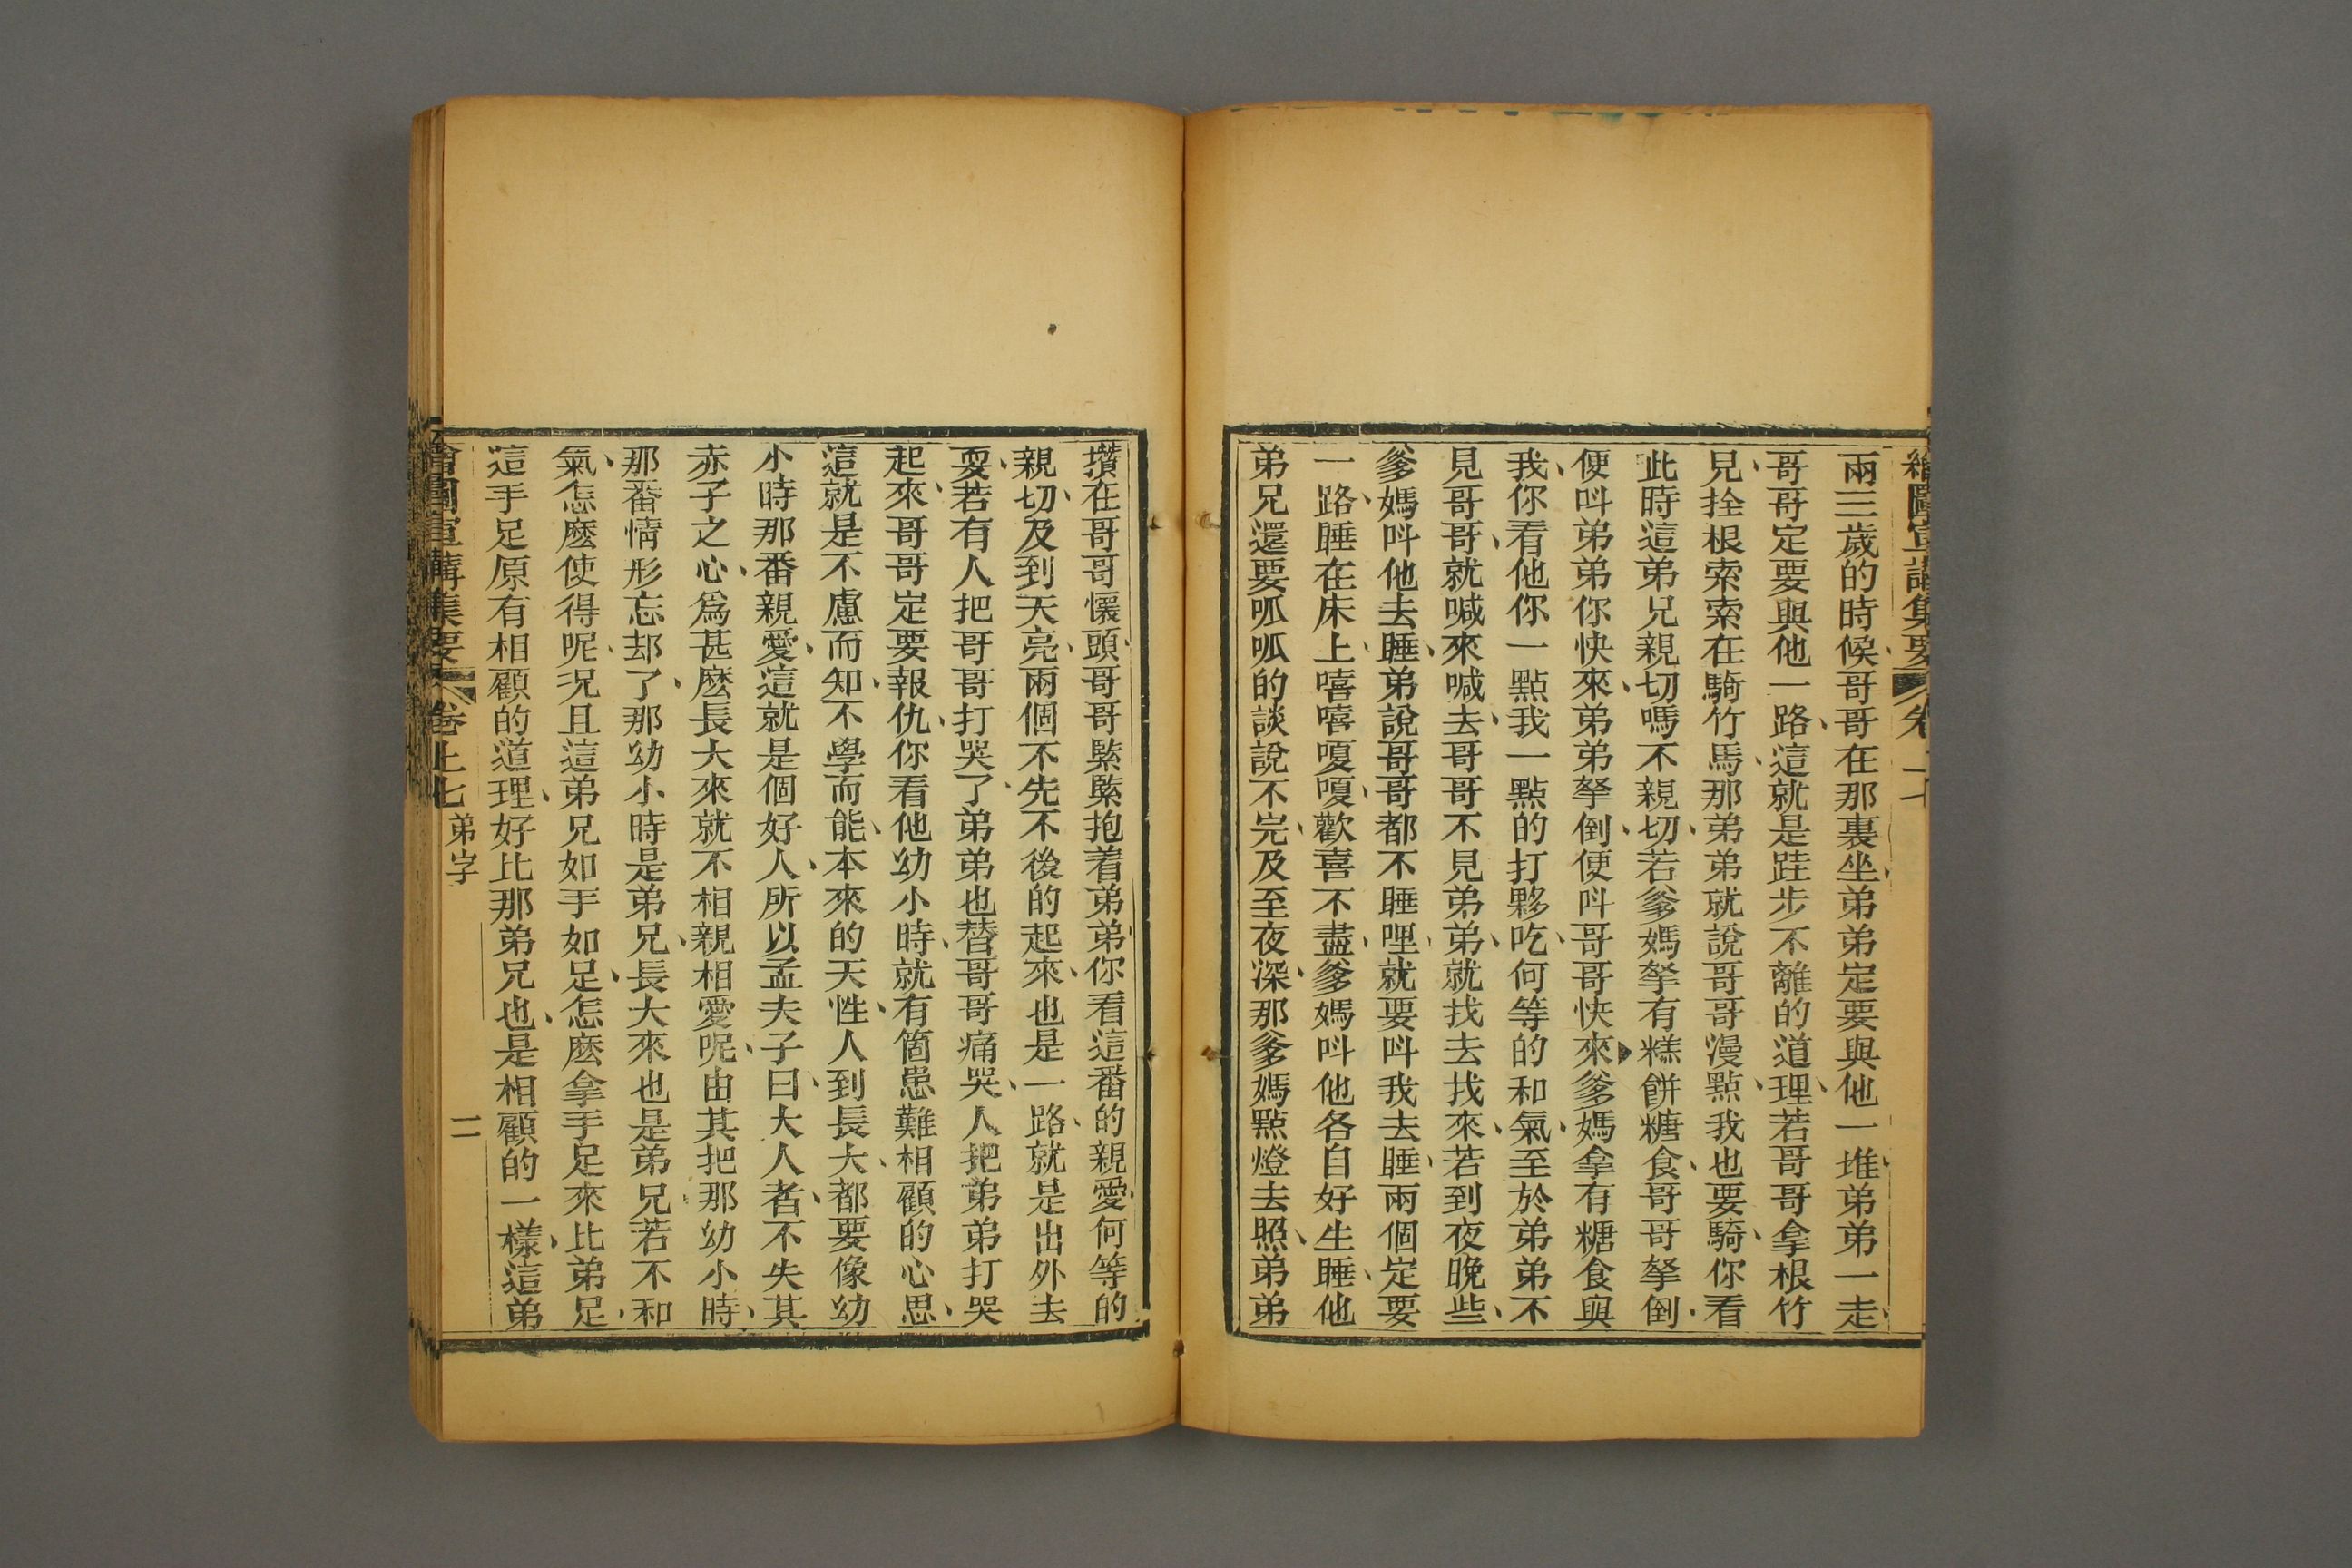 繪圖宣講集要 卷
兩三歲的時候、哥哥在那裏坐、弟弟定要與他一堆、弟弟一走、
哥哥定要與他一路、這就是跬步不離的道理、若哥哥拿根竹
兒、拴根索索、在騎竹馬、那弟弟就說哥哥漫點、我也要騎、你看
此時這弟兄親切嗎不親切、若爹媽拏有糕餅糖食、哥哥拏倒、
便呌弟弟你快來、弟弟拏倒、便呌哥哥快來、爹媽拿有糖食與
我、你看他你一點我一點的打夥、吃、何等的和氣、至於弟弟不
見哥哥、就喊來喊去、哥哥不見弟弟、就找去找來、若到夜晚些、
爹媽呌他去睡、弟說哥哥都不睡哩、就要呌我去睡、兩個定要
一路、睡在床上、嘻嘻嗄嗄、歡喜不盡、爹媽呌他各自好生睡、他
弟兄還要呱呱的談說不完、及至夜深、那爹媽點燈去照、弟弟
攢在哥哥懷頭、哥哥緊緊抱着弟弟、你看這番的親愛、何等的
親切、及到天亮、兩個不先不後的起來、也是一路、就是出外去
耍、若有人把哥哥打哭了、弟弟也替哥哥痛哭、人把弟弟打哭
起、來、哥哥定要報仇、你看他幼小時、就有箇患難相顧的心思、
這就是不慮而知、不學而能、本來的天性、人到長大、都要像幼
小時那番親愛、這就是個好人、所以孟夫子曰、大人者、不失其
赤子之心、爲甚麼長大來就不相親相愛呢、由其把那幼小時、
那番情形忘却了、那幼小時是弟兄、長大來也是弟兄、若不和
氣、怎麼使得呢、況且這弟兄如手如足、怎麼拿手足來比弟足、
這手足原有相顧的道理、好比那弟兄也、是相顧的一樣、這弟
繪圖宣講集要 卷上七 弟字 二